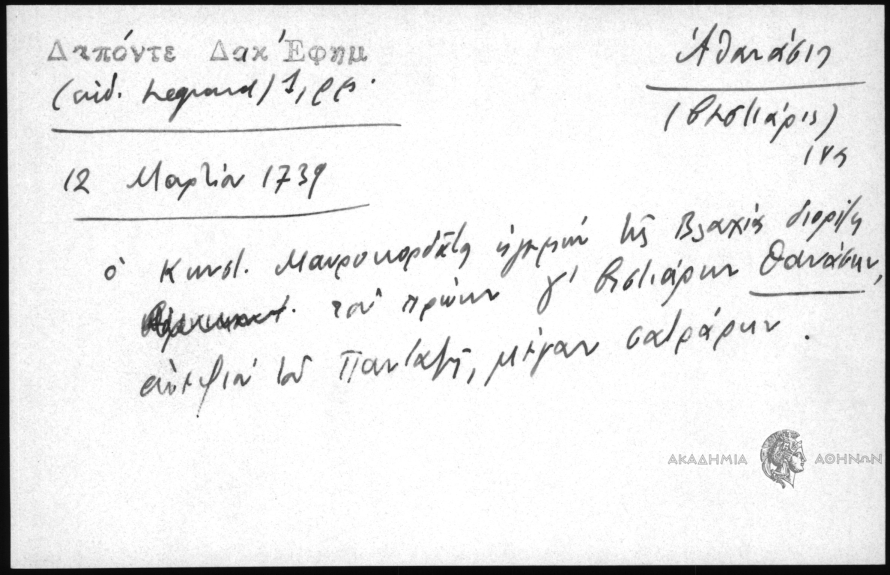 Δαπόντε Δακ Ἐφημ
(ἐκδ. Legrand) 1, ρρ.
Ἀθανάσιος
(βιστιάρης)
12 Μαρτίου 1739
ὁ Κωνστ. Μαυροκορδᾶτος ἡγεμὼν τῆς Βλαχίας διορίζει
τὸν πρώην γ' βιστιάρην Θανάσην,
τοῦ Πανταζῆ, μέγαν σατράρην.
ΑΚΑΔΗΜΙΑ ΑΘΗΝΩΝ